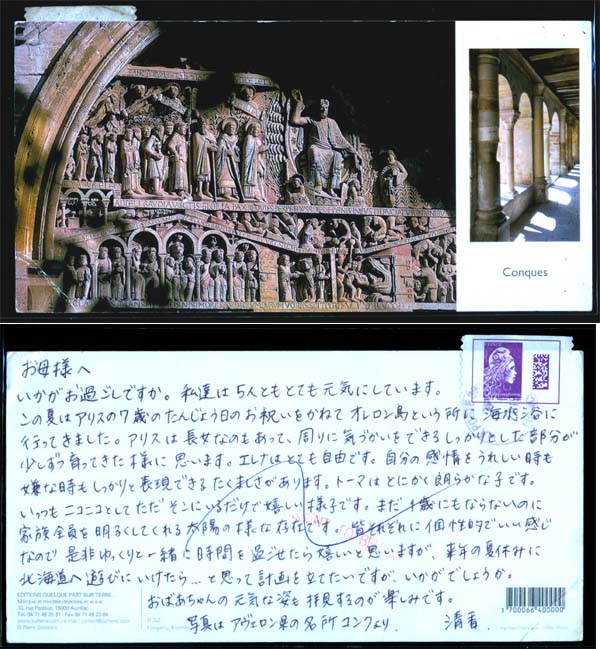 Conques
お母様へ
いかがお過ごしですか。私達は5人ともとても元気にしています。
この夏はアリスの7歳のたんじょう日のお祝いをかねてオレロン島という所に海水浴に
行ってきました。アリスは長女なのもあって、周りに気づかいをできるしっかりとした部分が
少しずつ育ってきた様に思います。エレナはとても自由です。自分の感情をうれしい時も
嫌な時もしっかりと表現できるたくましさがあります。トーマはとにかく朗らかな子です。
いっつもニコニコとしてただそこにいるだけで嬉しい様子です。まだ1歳にもならないのに
家族全員を明るくしてくれる太陽の様な存在です。皆それぞれに個性的でいい感じ
なので是非ゆっくりと一緒に時間を過ごせたら嬉しいと思いますが、来年の夏休みに
北海道へ遊びにいけたら...と思って計画を立てたいですが、いかがでしょうか。
おばあちゃんの元気な姿も拝見するのが楽しみです。
写真はアヴェロン県の名所コンクより.
清香.
EDITIONS QUELQUE PART SUR TERRE...
Marque et modèle déposés
10, rue Pasteur, 15000 Aurillac
3 700066 400000